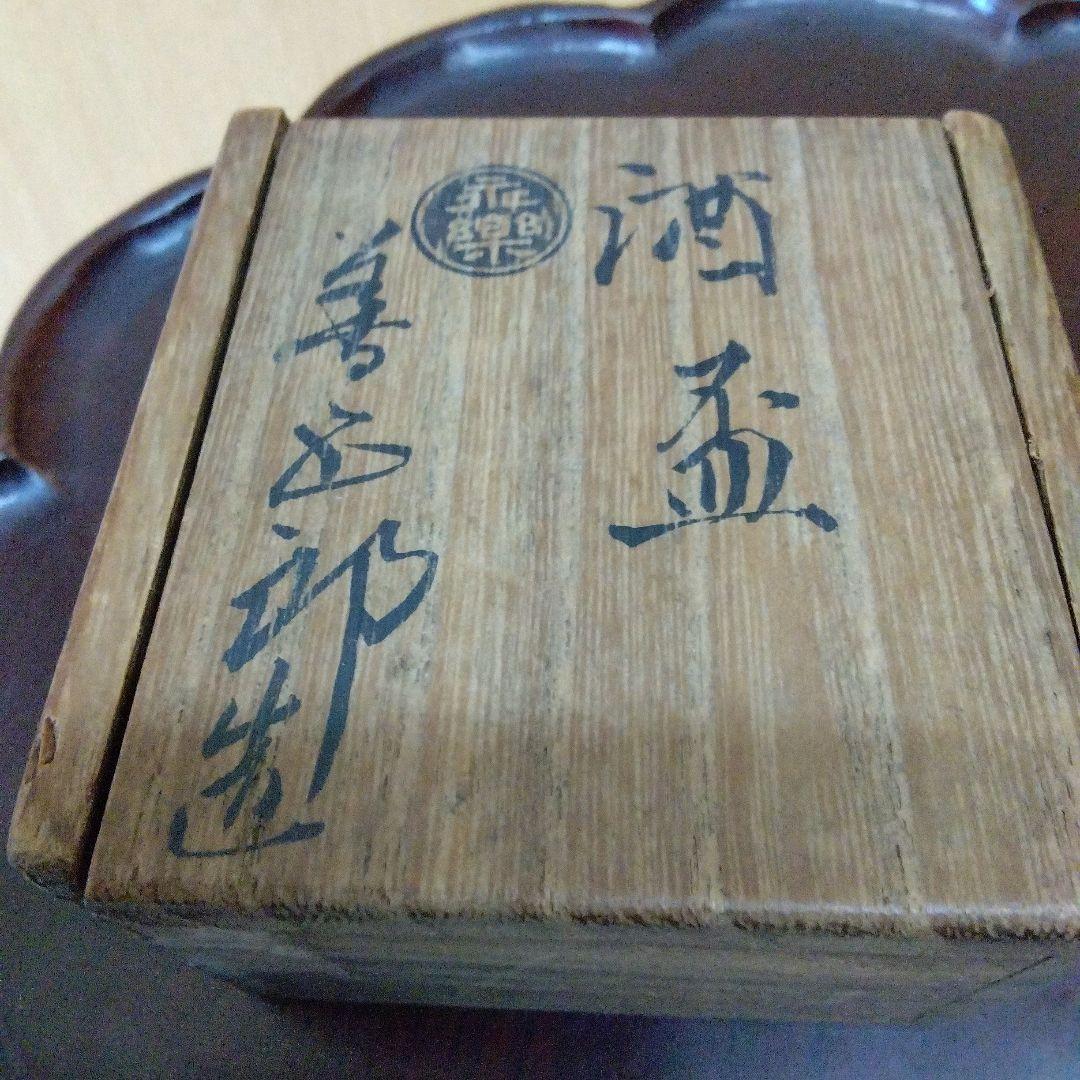 酒盃
善五郎造